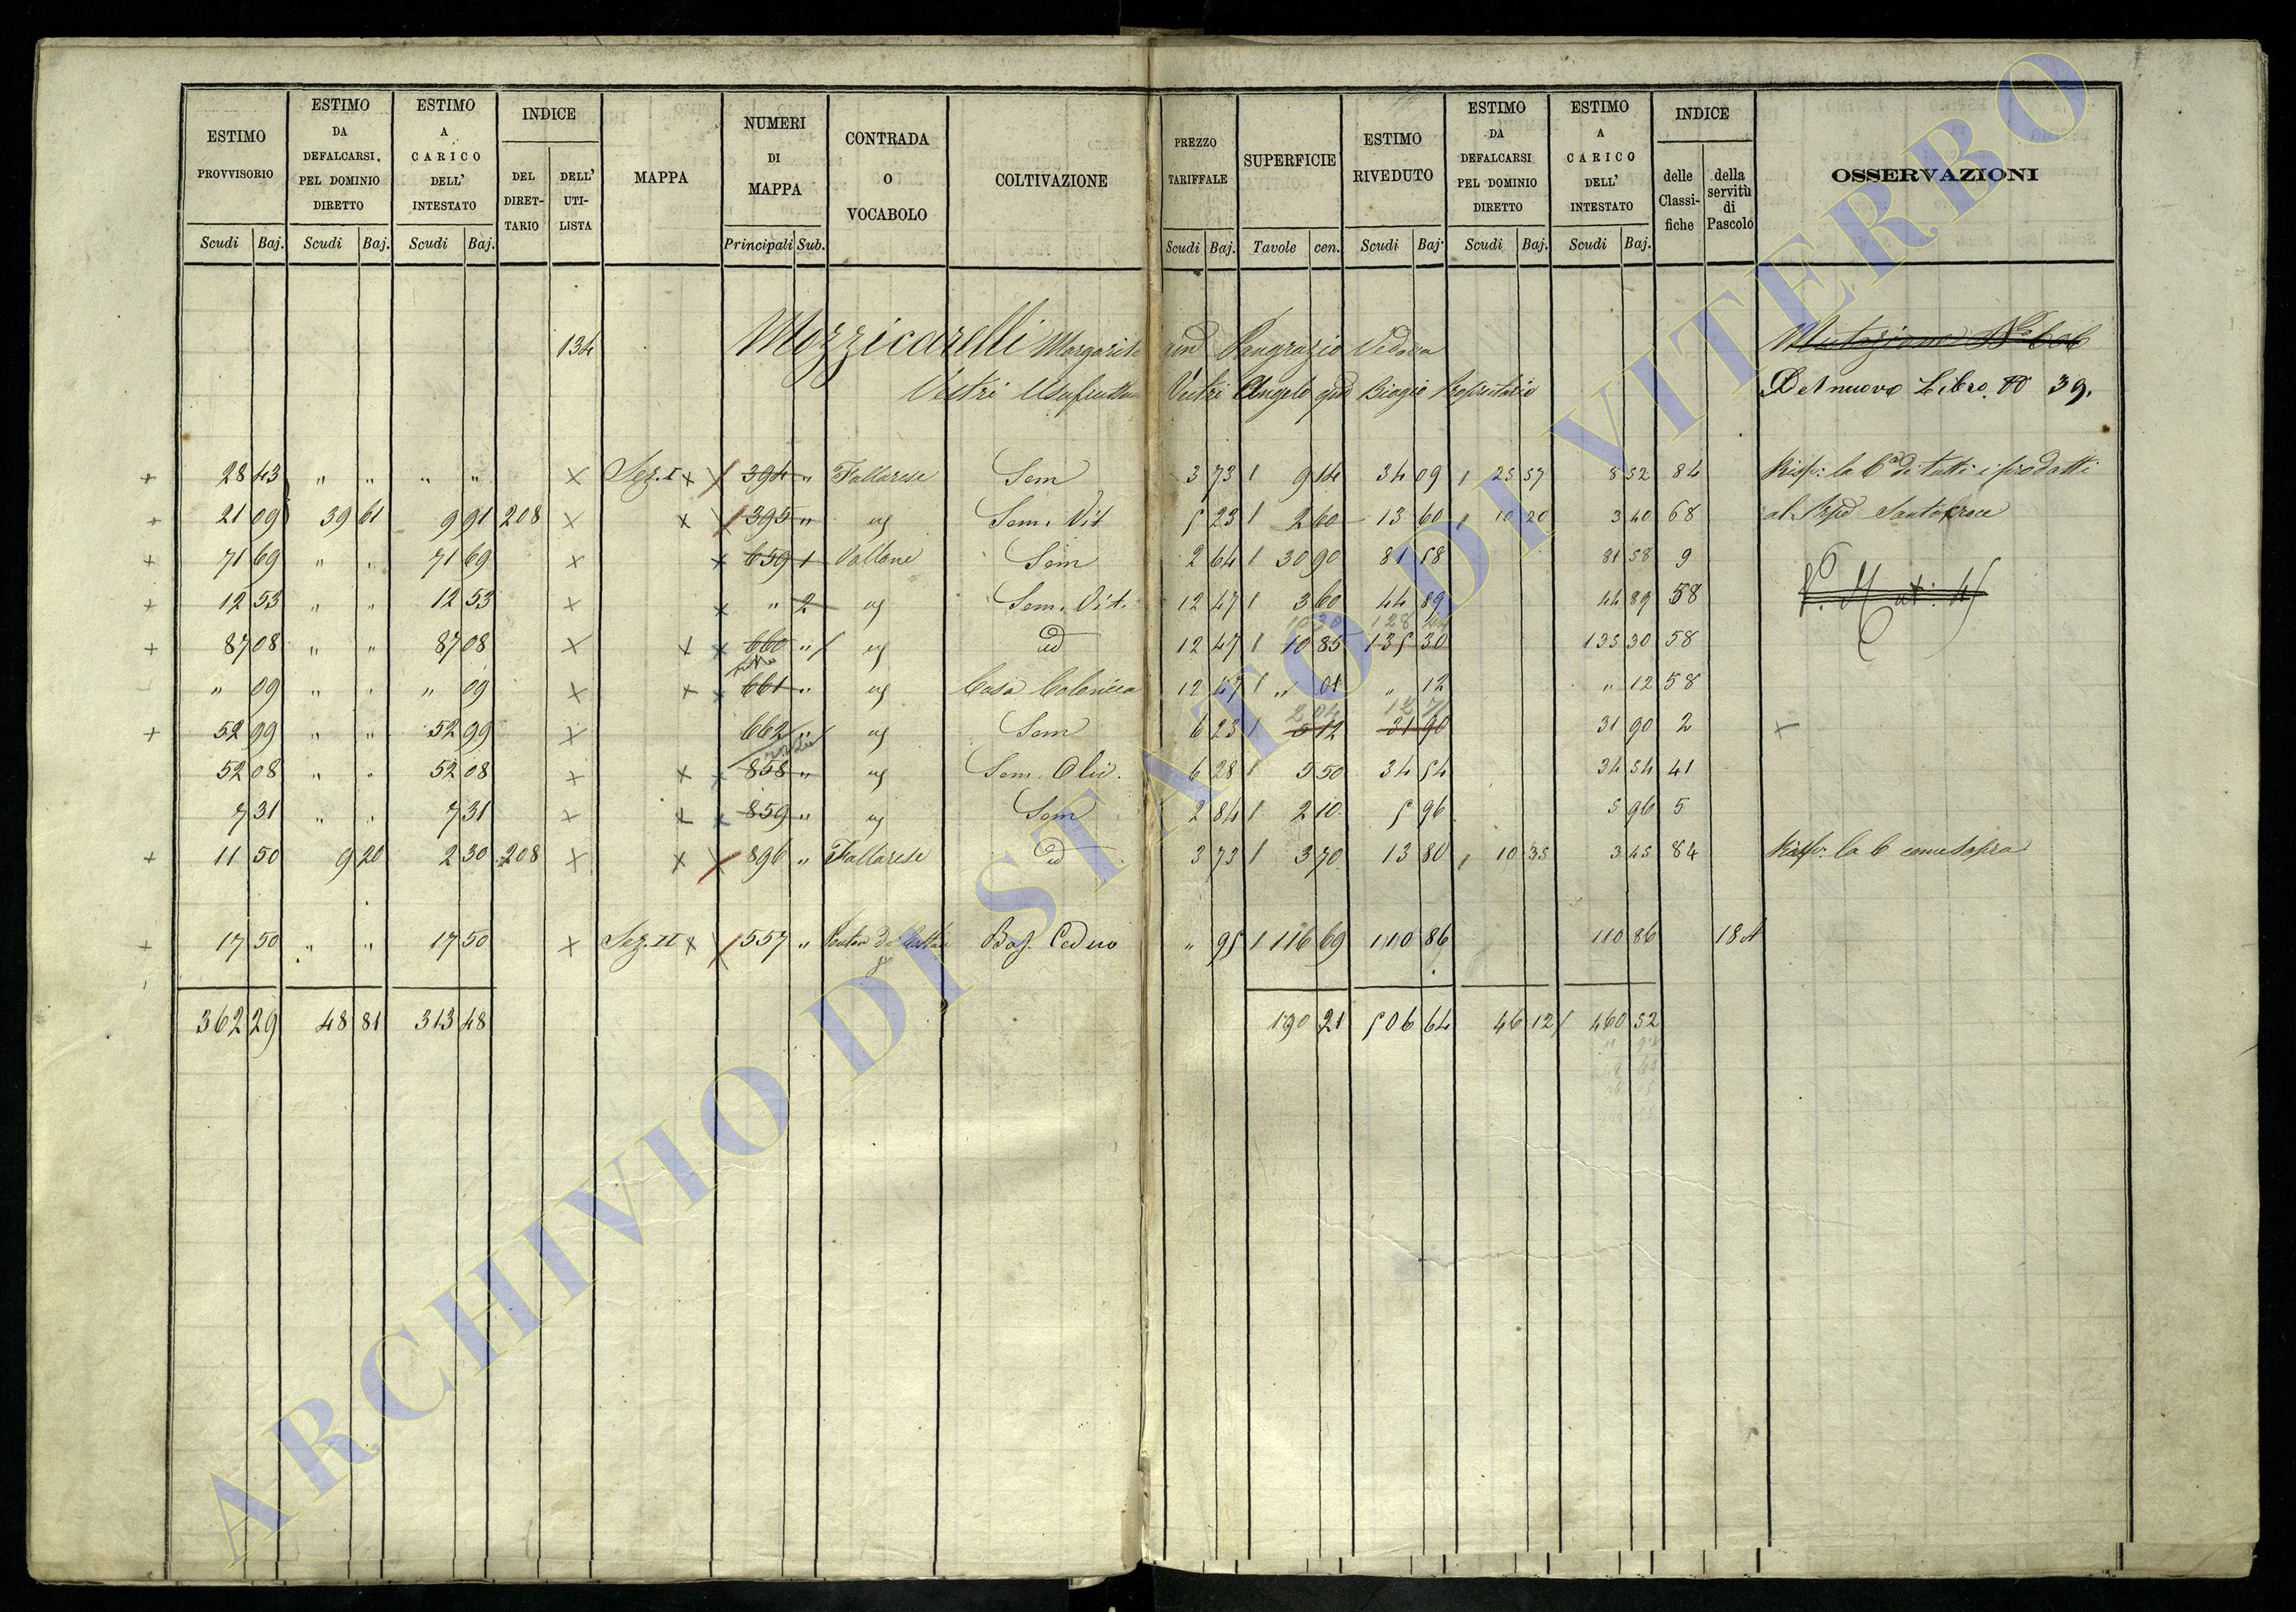 ESTIMO PROVVISORIO Scudi Baj.
ESTIMO DA DEFALCARSI. PEL DOMINIO DIRETTO Scudi Baj.
ESTIMO A CARICO DELL' INTESTATO Scudi Baj.
INDICE DEL DIRET- TARIO DELL' UTI- LISTA
MAPPA
NUMERI DI MAPPA Principali Sub.
CONTRADA O VOCABOLO
COLTIVAZIONE
PREZZO TARIFFALE Scudi Baj.
SUPERFICIE Tavole cen.
ESTIMO RIVEDUTO Scudi Baj
ESTIMO DA DEFALCARSI PEL DOMINIO DIRETTO Scudi Baj.
ESTIMO A CARICO DELL' INTESTATO Scudi Baj.
INDICE delle Classi- fiche della servitù di Pascolo
OSSERVAZIONI
134 Mozzicarelli Margarita qm Pangrazio Vedova Mutazione No 606
Vestri Usufruttua Vestri Angelo qm Biagio Proprietario Del nuovo Libro No 39.
+ 28 43 " " " " × Sez. I × 394 " Fallarese Sem 3 73 9 14 34 09 25 57 8 52 84 Risp: la 6a di tutti i prodotti
+ 21 09 39 61 9 91 208 × × 395 " Sem. Vit 5 23 2 60 13 60 10 20 3 40 68 al
+ 71 69 " " 71 69 × × 659 1 Vallone Sem 2 64 30 90 81 58 81 58 9
+ 12 53 " " 12 53 × × " 2 Sem. Vit. 12 47 3 60 44 89 44 89 58
+ 87 08 " " 87 08 × × × 660 " id 12 47 10 85 135 30 135 30 58
" 09 " " " 09 × × × 661 " Casa Colonica 12 47 " 01 " 12 " 12 58
+ 52 99 " " 52 99 × 662 " Sem 6 23 5 12 31 90 31 90 2 +
52 08 " " 52 08 × × × 858 " Sem. Oliv. 6 28 5 50 34 54 34 54 41
7 31 " " 7 31 × × × 859 " Sem 2 84 2 10 5 96 5 96 5
+ 11 50 9 20 2 30 208 × × 896 " Fallarese id 3 73 3 70 13 80 10 35 3 45 84 Risp: la 6 come sopra
+ 17 50 " " 17 50 × Sez. II × 557 " Bos. Ceduo " 95 116 69 110 86 110 86 18 A
362 29 48 81 313 48 190 21 506 64 46 12 460 52
ARCHIVIO DI STATO DI VITERBO